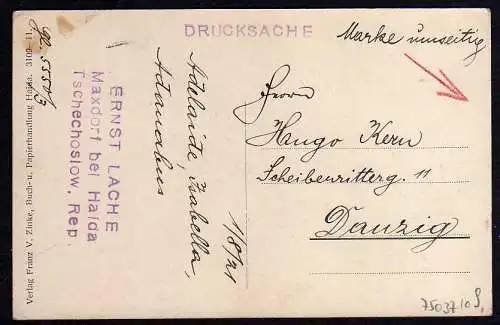 DRUCKSACHE
Marke umseitig
Herrn
Hugo Kern
Scheibenrittterg. 11
Danzig
1/8/21
Adelaide, Isabella,
ERNST LACHE
Maxdorf bei Haida
Tschechoslow. Rep.
Verlag Franz V. Zinke, Buch- u. Papierhandlung Haida. 3109-11.